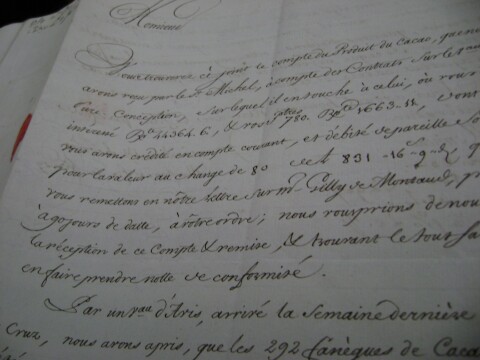 Monsieur
Vous trouverez cÿ joint le compte du Produit du Cacao, que nous
avons reçu par le Sr. Michel, à compte des Contrats sur le
Pure Conception, sur lequel il en touche à celui, où vous
interessé Ps. 44364.6, & 780. 1663.11, dont
vous avons crédité en compte courant, et débité de pareille So
pour la valeur au change de 80 831-16-9-
vous remettons en nôtre Lettre sur Mr. Gilly de Montaud, p
à 90 jours de datte, à vôtre ordre; nous vous prions de nou
la réception de ce Compte & remise, & trouvant le tout ja
en faire prendre notte de conformité.
Par un vau d'Avis, arrivé la Semaine dernière
Cruz, nous avons apris, que les 292 fanègues de Caca